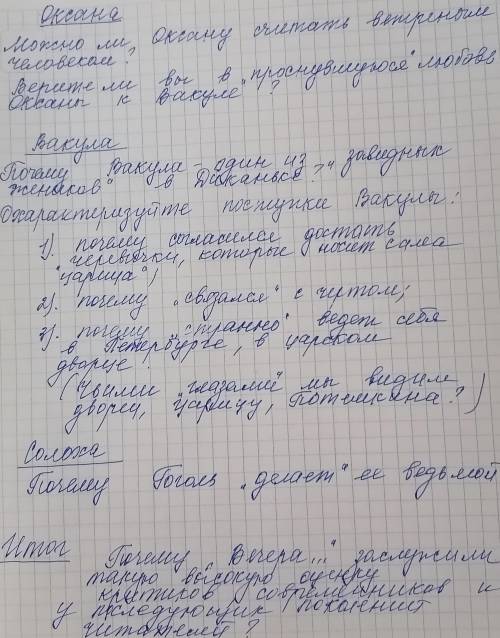 Оксана
Можно ли, Оксану считать ветреным
человеком?
Верите ли вы в „проснувшуюся" любовь
Оксаны к Вакуле" ?
Вакула
Почему Вакула – один из „завидных
женихов" в Диканьке?"
Охарактеризуйте поступки Вакулы:
1). почему согласился достать
черевички, которые носит сама
"царица")
2). почему „связался" с чертом;
3). почему „странно" ведет себя
в Петербурге, в царском
дворце?
(Чьими „глазами" мы видим
дворец, царицу, Потемкина?)
Солоха
Почему Гоголь „делает" ее ведьмой
Итог
Почему „Вечера..." заслужили
такую высокую оценку
критиков современников и
у последующих поколений
читателей?